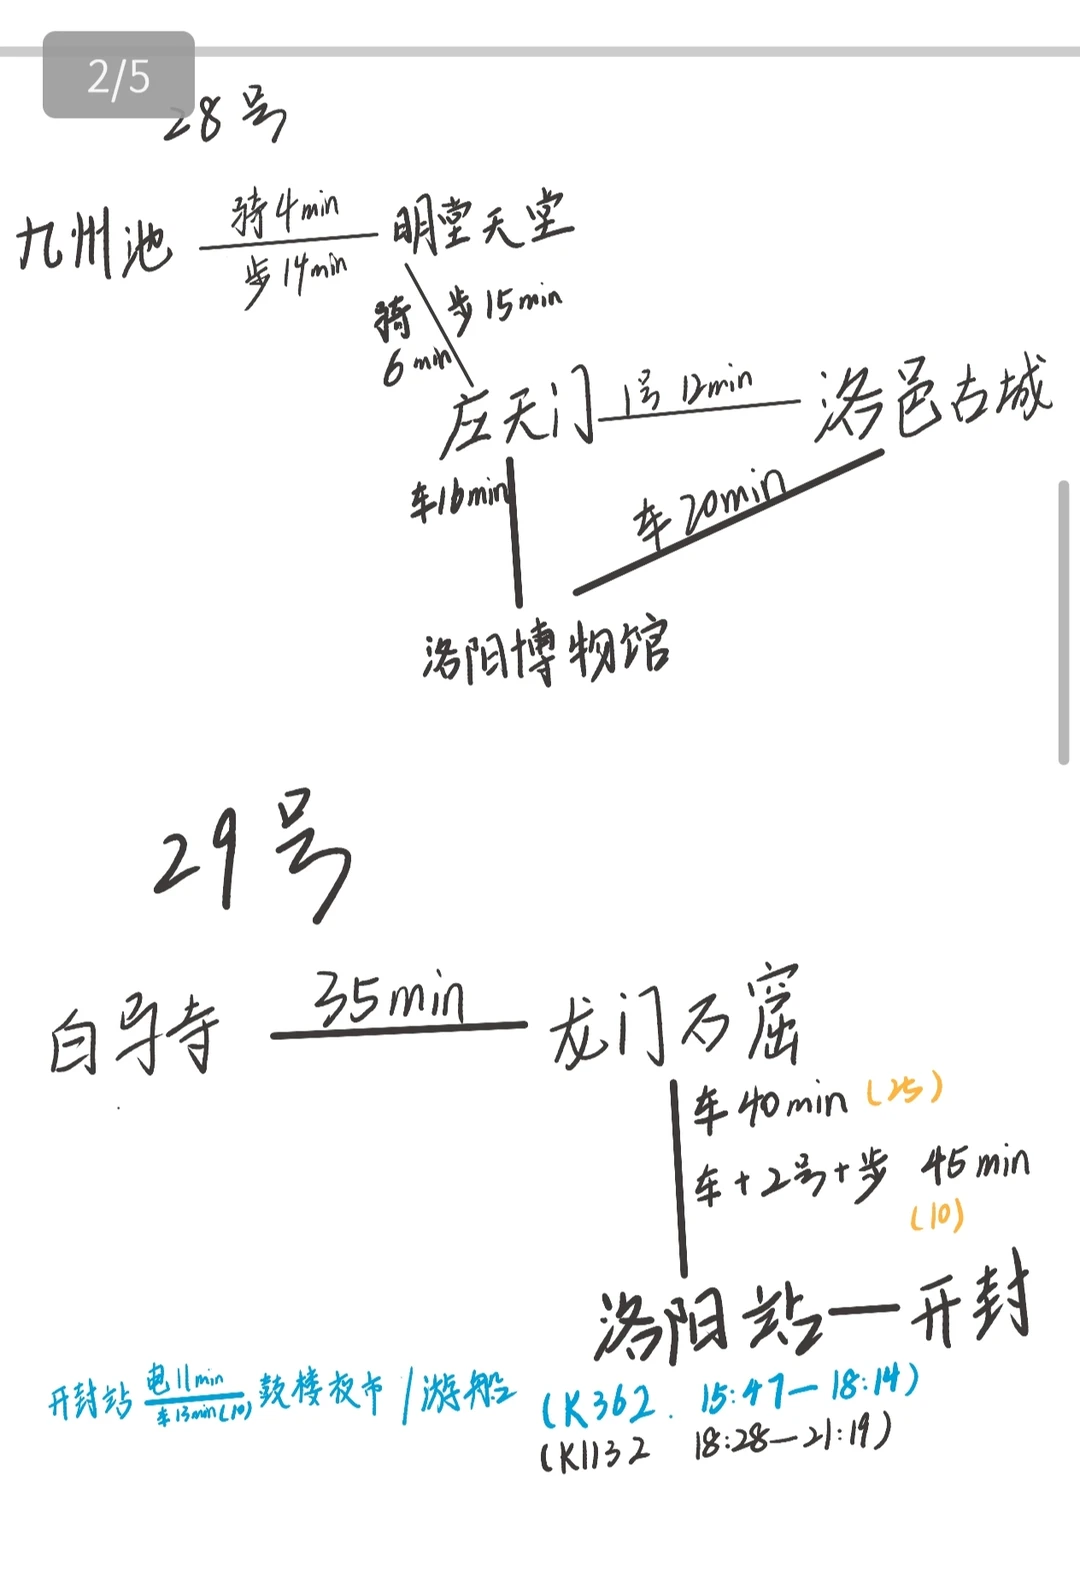 2/5
28号
九州池 骑4min 明堂天堂
步14min
骑 步15min
6min
应天门 1号 12min 洛邑古城
车16min 车20min
洛阳博物馆
29号
白马寺 35min 龙门石窟
车40min (25)
车+2号+步 45min
(10)
洛阳站—开封
开封站 电11min 鼓楼夜市/游船
车13min(10)
(K362. 15:47—18:14)
(K1132 18:28—21:19)